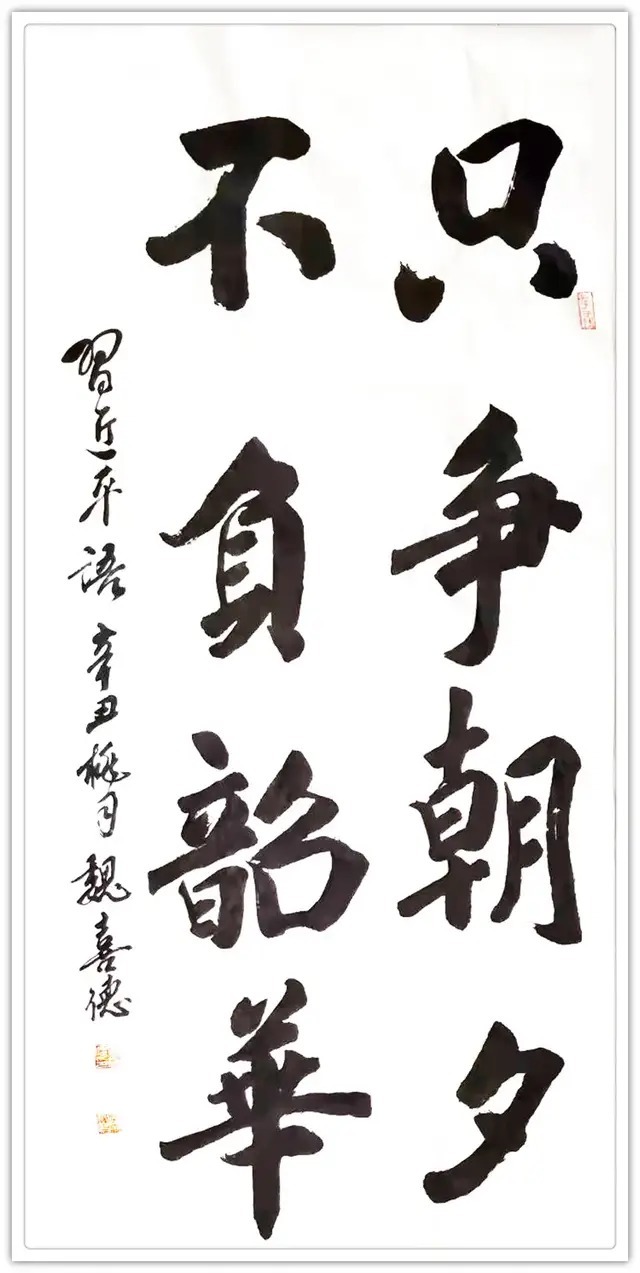 只争朝夕
不負韶華
習近平語 辛丑桃月 魏喜德